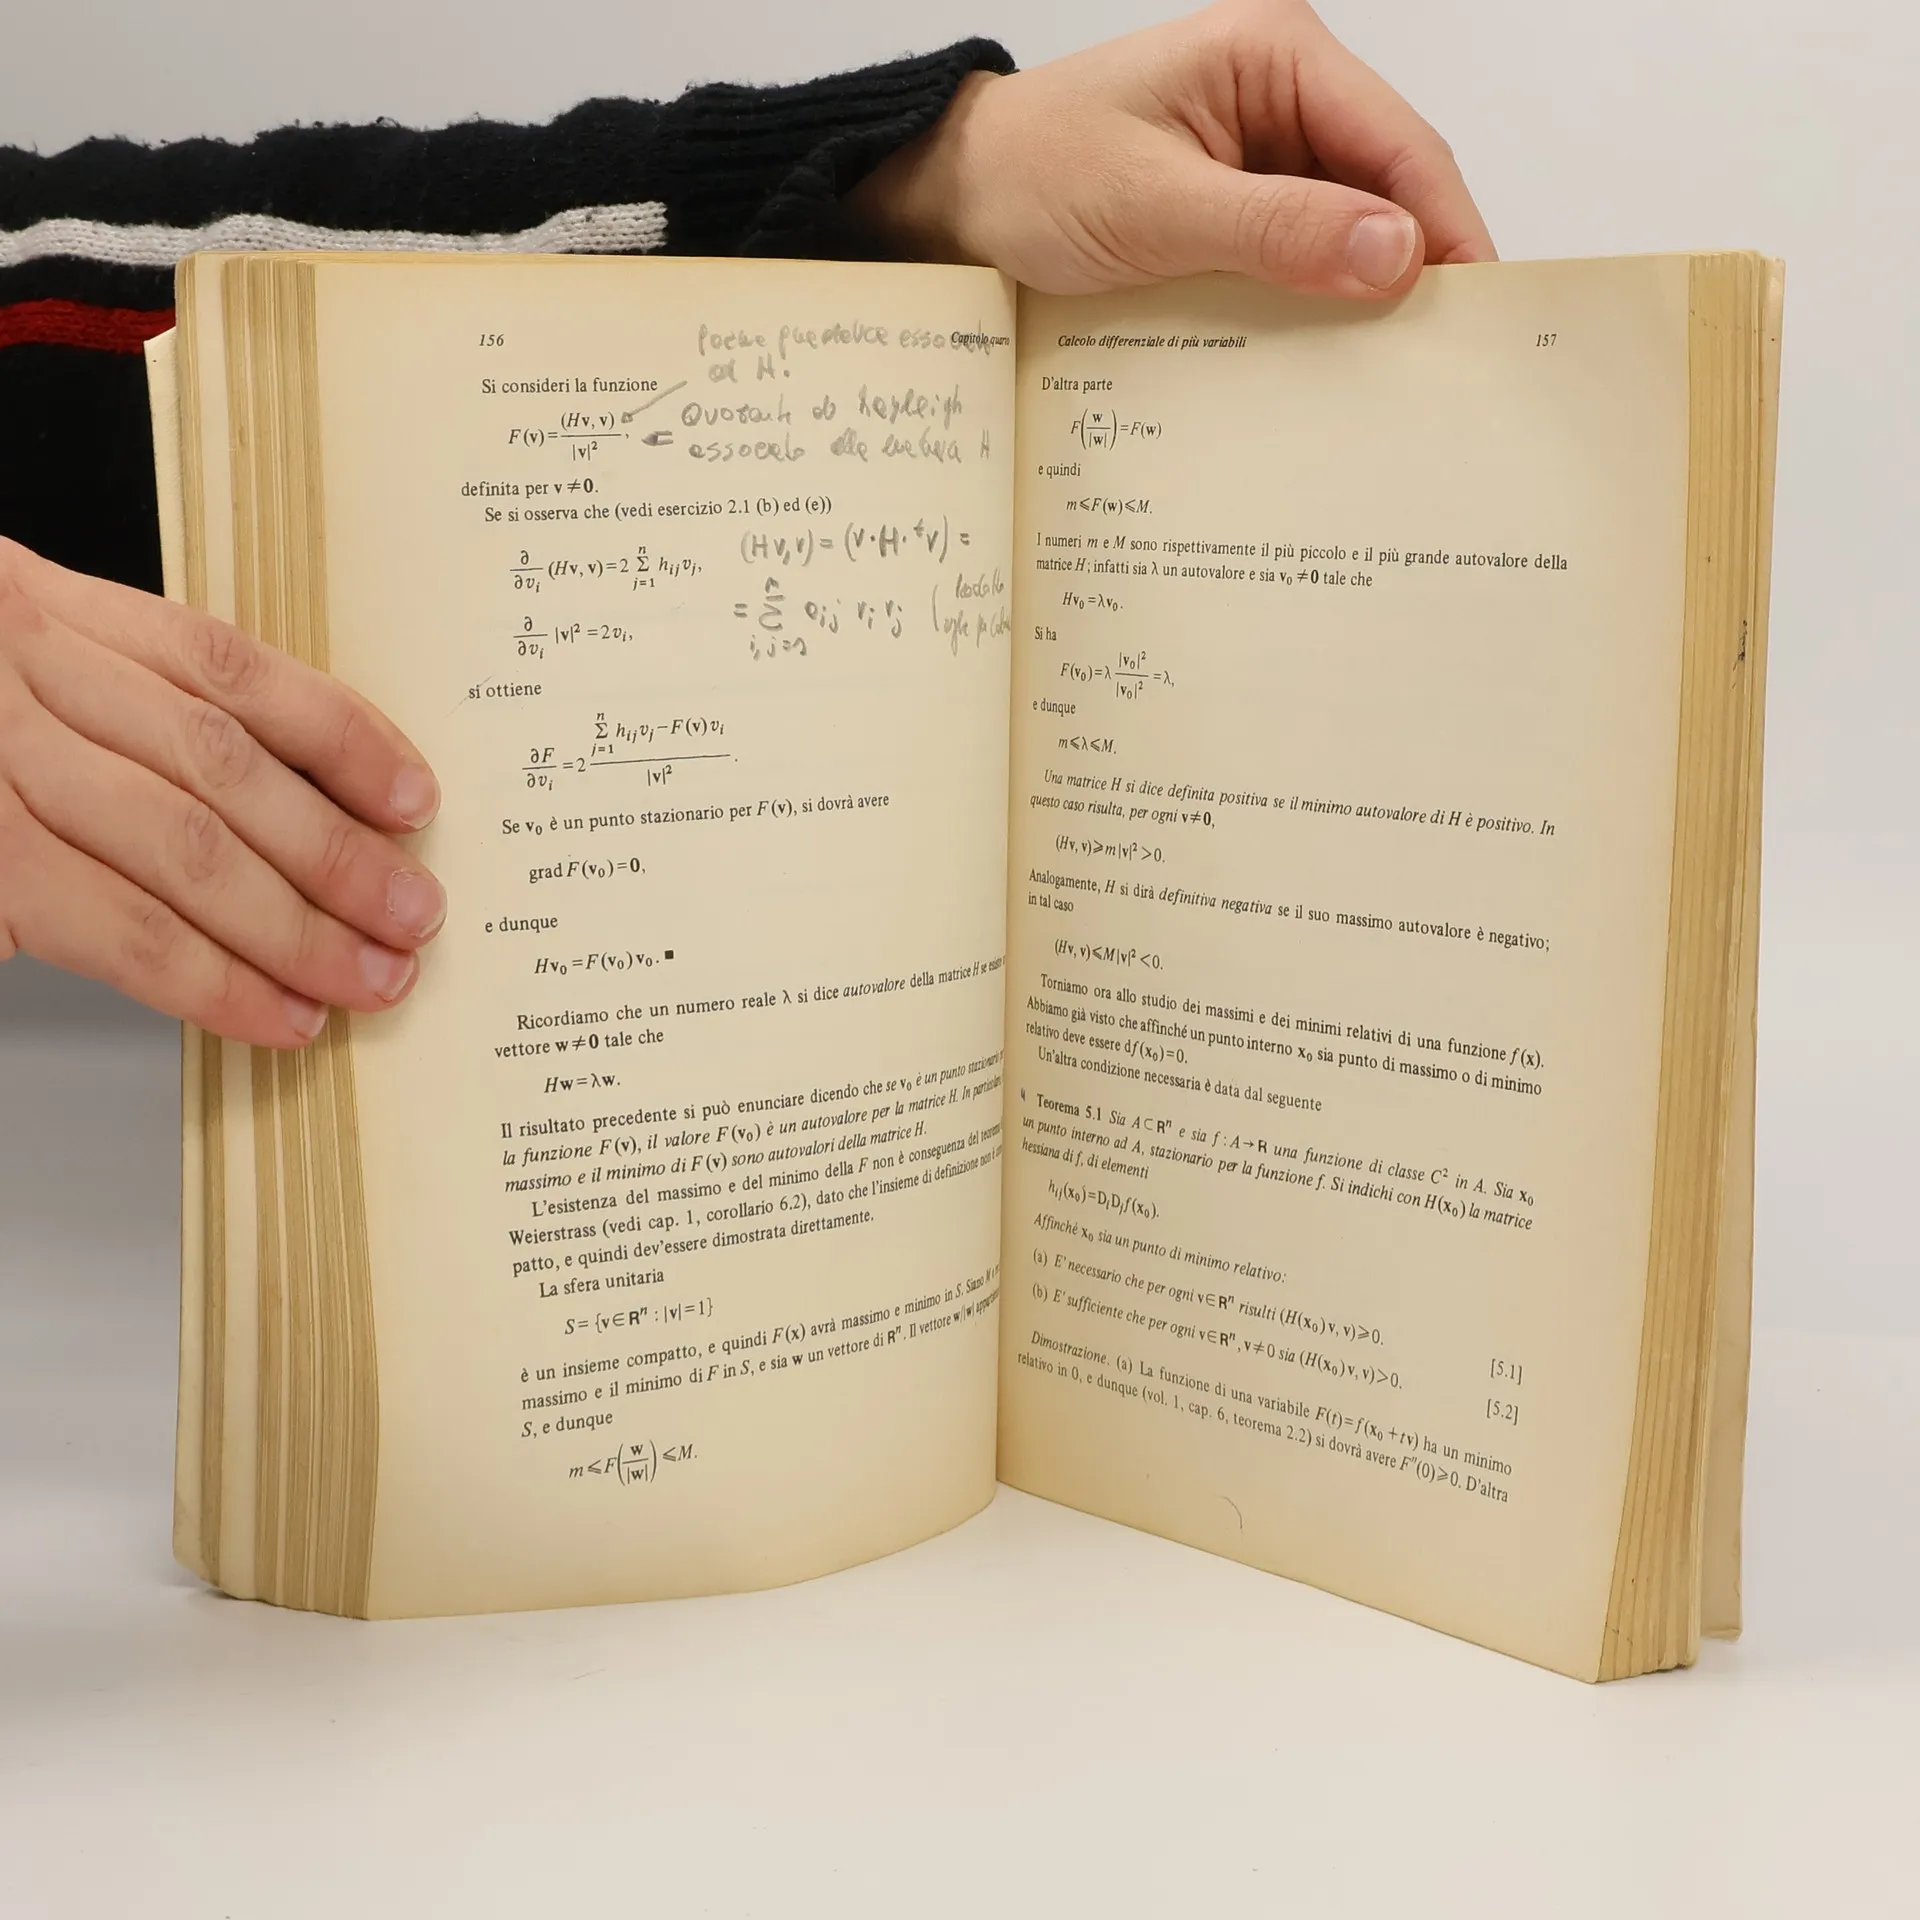 156
Capitolo quarto
ad H.
Si consideri la funzione
F(v)=(Hv, v)/|v|²,
Quoziente di Rayleigh
associato alla matrice H
definita per v≠0.
Se si osserva che (vedi esercizio 2.1 (b) ed (e))
∂/∂vᵢ (Hv, v)=2 Σⁿⱼ₌₁ hᵢⱼvⱼ,
(Hv,v)=(v·H·ᵗv) =
∂/∂vᵢ |v|²=2vᵢ,
= Σⁿᵢ,ⱼ₌₁ aᵢⱼ vᵢ vⱼ
si ottiene
∂F/∂vᵢ=2 (Σⁿⱼ₌₁ hᵢⱼvⱼ−F(v)vᵢ)/|v|².
Se v₀ è un punto stazionario per F(v), si dovrà avere
grad F(v₀)=0,
e dunque
Hv₀=F(v₀)v₀. ■
Ricordiamo che un numero reale λ si dice autovalore della matrice H se esiste
vettore w≠0 tale che
Hw=λw.
Il risultato precedente si può enunciare dicendo che se v₀ è un punto stazionario
la funzione F(v), il valore F(v₀) è un autovalore per la matrice H. In particolare
massimo e il minimo di F(v) sono autovalori della matrice H.
L'esistenza del massimo e del minimo della F non è conseguenza del teorema
Weierstrass (vedi cap. 1, corollario 6.2), dato che l'insieme di definizione non è
patto, e quindi dev'essere dimostrata direttamente.
La sfera unitaria
S={v∈Rⁿ : |v|=1}
è un insieme compatto, e quindi F(x) avrà massimo e minimo in S. Siano M e m
massimo e il minimo di F in S, e sia w un vettore di Rⁿ. Il vettore w/|w|
S, e dunque
m⩽F(w/|w|)⩽M.
Calcolo differenziale di più variabili
157
D'altra parte
F(w/|w|)=F(w)
e quindi
m⩽F(w)⩽M.
I numeri m e M sono rispettivamente il più piccolo e il più grande autovalore della
matrice H; infatti sia λ un autovalore e sia v₀≠0 tale che
Hv₀=λv₀.
Si ha
F(v₀)=λ |v₀|²/|v₀|²=λ,
e dunque
m⩽λ⩽M.
Una matrice H si dice definita positiva se il minimo autovalore di H è positivo. In
questo caso risulta, per ogni v≠0,
(Hv, v)⩾m|v|²>0.
Analogamente, H si dirà definitiva negativa se il suo massimo autovalore è negativo;
in tal caso
(Hv, v)⩽M|v|²<0.
Torniamo ora allo studio dei massimi e dei minimi relativi di una funzione f(x).
Abbiamo già visto che affinché un punto interno x₀ sia punto di massimo o di minimo
relativo deve essere df(x₀)=0.
Un'altra condizione necessaria è data dal seguente
Teorema 5.1 Sia A⊂Rⁿ e sia f : A→R una funzione di classe C² in A. Sia x₀
un punto interno ad A, stazionario per la funzione f. Si indichi con H(x₀) la matrice
hessiana di f, di elementi
hᵢⱼ(x₀)=DᵢDⱼf(x₀).
Affinché x₀ sia un punto di minimo relativo:
(a) E' necessario che per ogni v∈Rⁿ risulti (H(x₀)v, v)⩾0. [5.1]
(b) E' sufficiente che per ogni v∈Rⁿ, v≠0 sia (H(x₀)v, v)>0. [5.2]
Dimostrazione. (a) La funzione di una variabile F(t)=f(x₀+tv) ha un minimo
relativo in 0, e dunque (vol. 1, cap. 6, teorema 2.2) si dovrà avere F''(0)⩾0. D'altra